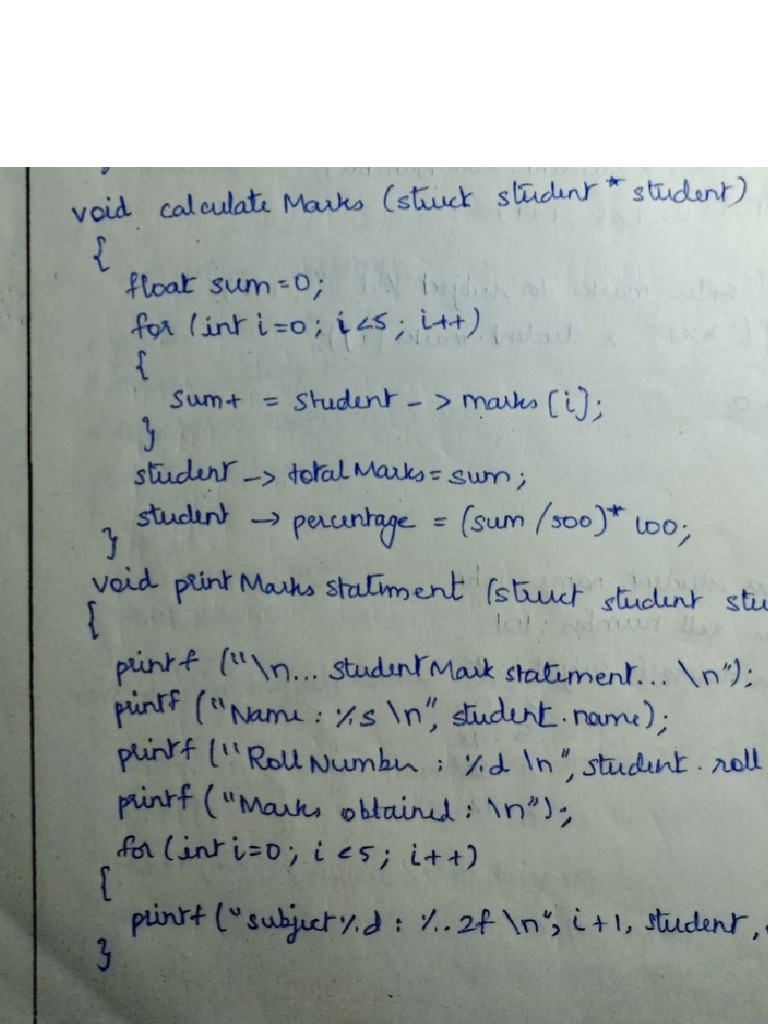 }
void calculate Marks (struct student * student)
{
float sum=0;
for (int i=0; i<5; i++)
{
sum+ = student -> marks [i];
}
student -> total Marks = sum;
student -> percentage = (sum /500)* 100;
}
void print Marks statiment (struct student stu
{
printf ("\n... student Mark statement... \n");
printf ("Name : %s \n", student.name);
printf ("Roll Number : %d \n", student . roll
printf ("Marks obtained : \n");
for (int i=0; i <5; i++)
{
printf ("subject %d : %.2f \n", i+1, student .
}